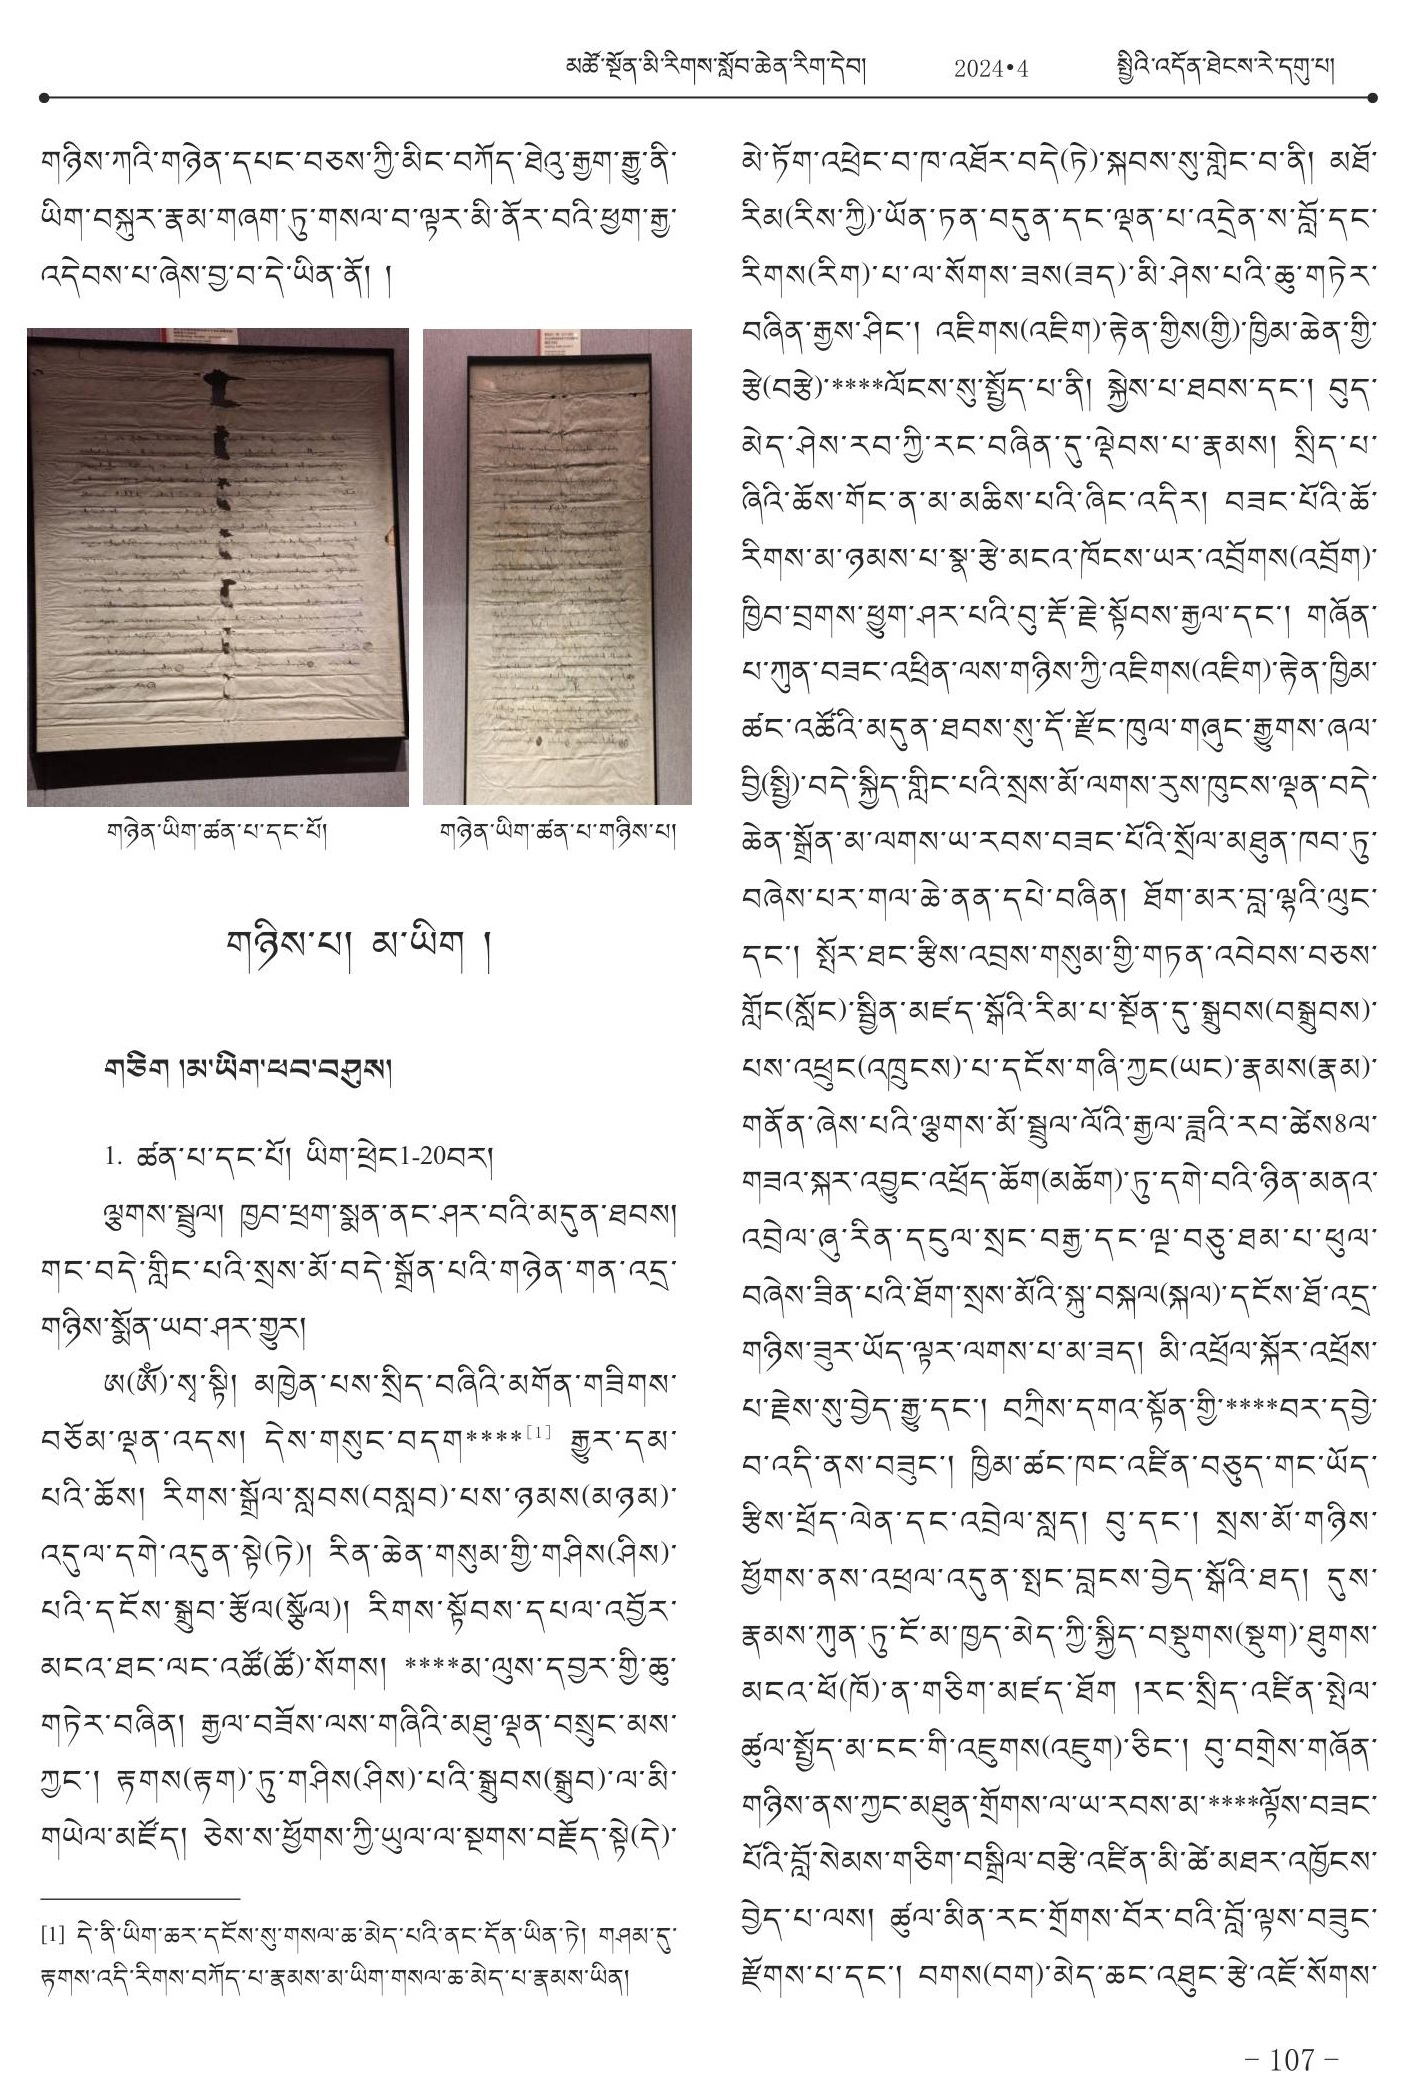 མཚོ་སྔོན་མི་རིགས་སློབ་ཆེན་རིག་དེབ། 2024•4 སྤྱིའི་འདོན་ཐེངས་རེ་དགུ་པ།
གཉིས་ཀའི་གཉེན་དཔང་བཅས་ཀྱི་མིང་བཀོད་ཐེའུ་རྒྱག་རྒྱུ་ནི་
ཡིག་བསྐུར་རྣམ་གཞག་ཏུ་གསལ་བ་ལྟར་མི་ནོར་བའི་ཕྱག་རྒྱ་
འདེབས་པ་ཞེས་བྱ་བ་དེ་ཡིན་ནོ། །
གཉེན་ཡིག་ཚན་པ་དང་པོ།
གཉེན་ཡིག་ཚན་པ་གཉིས་པ།
གཉིས་པ། མ་ཡིག །
གཅིག །མ་ཡིག་ཕབ་བཤུས།
1. ཚན་པ་དང་པོ། ཡིག་ཕྲེང1-20བར།
ལྕགས་སྦྲུལ། ཁྱབ་ཕྲག་སྨན་ནང་ཤར་བའི་མདུན་ཐབས།
གང་བདེ་གླིང་པའི་སྲས་མོ་བདེ་སྒྲོན་པའི་གཉེན་གན་འདྲ་
གཉིས་སྨོན་ཡབ་ཤར་གྱུར།
ཨ(ཨོཾ)་སྭ་སྟི། མཁྱེན་པས་སྲིད་བཞིའི་མགོན་གཟིགས་
བཅོམ་ལྡན་འདས། དེས་གསུང་བདག****[1] རྒྱུར་དམ་
པའི་ཆོས། རིགས་སྒྲོལ་སླབས(བསླབ)་པས་ཉམས(མཉམ)་
འདུལ་དགེ་འདུན་སྟེ(ཏེ)། རིན་ཆེན་གསུམ་གྱི་གཤིས(ཤིས)་
པའི་དངོས་སྒྲུབ་རྩོལ(སྩོལ)། རིགས་སྟོབས་དཔལ་འབྱོར་
མངའ་ཐང་ལང་འཚོ(ཚོ)་སོགས། ****མ་ལུས་དབྱར་གྱི་ཆུ་
གཏེར་བཞིན། རྒྱལ་བཟོས་ལས་གཞིའི་མཐུ་ལྡན་བསྲུང་མས་
ཀྱང་། རྟགས(རྟག)་ཏུ་གཤིས(ཤིས)་པའི་སྒྲུབས(སྒྲུབ)་ལ་མི་
གཡེལ་མཛོད། ཅེས་ས་ཕྱོགས་ཀྱི་ཡུལ་ལ་སྔགས་བརྗོད་སྟེ(དེ)་
[1] དེ་ནི་ཡིག་ཆར་དངོས་སུ་གསལ་ཆ་མེད་པའི་ནང་དོན་ཡིན་ཏེ། གཤམ་དུ་
རྟགས་འདི་རིགས་བཀོད་པ་རྣམས་མ་ཡིག་གསལ་ཆ་མེད་པ་རྣམས་ཡིན།
མེ་ཏོག་འཕྲེང་བ་ཁ་འཐོར་བདེ(ཏེ)་སྐབས་སུ་གླེང་བ་ནི། མཐོ་
རིམ(རིས་ཀྱི)་ཡོན་ཏན་བདུན་དང་ལྡན་པ་འདྲེན་ས་བློ་དང་
རིགས(རིག)་པ་ལ་སོགས་ཟས(ཟད)་མི་ཤེས་པའི་ཆུ་གཏེར་
བཞིན་རྒྱས་ཤིང་། འཇིགས(འཇིག)་རྟེན་གྱིས(གྱི)་ཁྱིམ་ཆེན་གྱི་
རྩེ(བརྩེ)་****ལོངས་སུ་སྤྱོད་པ་ནི། སྐྱེས་པ་ཐབས་དང་། བུད་
མེད་ཤེས་རབ་ཀྱི་རང་བཞིན་དུ་ལྡེབས་པ་རྣམས། སྲིད་པ་
ཞིའི་ཆོས་གོང་ན་མ་མཆིས་པའི་ཞིང་འདིར། བཟང་པོའི་ཆོ་
རིགས་མ་ཉམས་པ་སྣ་རྩེ་མངའ་ཁོངས་ཡར་འབྲོགས(འབྲོག)་
ཁྱིབ་བྲགས་ཕྱུག་ཤར་པའི་བུ་རྡོ་རྗེ་སྟོབས་རྒྱལ་དང་། གཞོན་
པ་ཀུན་བཟང་འཕྲིན་ལས་གཉིས་ཀྱི་འཇིགས(འཇིག)་རྟེན་ཁྱིམ་
ཚང་འཚོའི་མདུན་ཐབས་སུ་དོ་རྫོང་ཁུལ་གཞུང་རྒྱུགས་ཞལ་
བྱི(སྤྱི)་བདེ་སྐྱིད་གླིང་པའི་སྲས་མོ་ལགས་རུས་ཁུངས་ལྡན་བདེ་
ཆེན་སྒྲོན་མ་ལགས་ཡ་རབས་བཟང་པོའི་སྲོལ་མཐུན་ཁབ་ཏུ་
བཞེས་པར་གལ་ཆེ་ནན་དཔེ་བཞིན། ཐོག་མར་བླ་ལྷའི་ལུང་
དང་། སྤོར་ཐང་རྩིས་འབྲས་གསུམ་གྱི་གཏན་འབེབས་བཅས་
གློང(སློང)་སྦྱིན་མཛད་སྒོའི་རིམ་པ་སྔོན་དུ་སྒྲུབས(བསྒྲུབས)་
པས་འཕྲུང(འཁྲུངས)་པ་དངོས་གཞི་ཀྱང(ཡང)་རྣམས(རྣམ)་
གནོན་ཞེས་པའི་ལྕགས་མོ་སྦྲུལ་ལོའི་རྒྱལ་ཟླའི་རབ་ཚེས8ལ་
གཟའ་སྐར་འབྱུང་འཕྲོད་ཆོག(མཆོག)་ཏུ་དགེ་བའི་ཉིན་མནའ་
འབྲེལ་ཞུ་རིན་དངུལ་སྲང་བརྒྱ་དང་ལྔ་བཅུ་ཐམ་པ་ཕུལ་
བཞེས་ཟིན་པའི་ཐོག་སྲས་མོའི་སྐུ་བསྐལ(སྐལ)་དངོས་ཐོ་འདྲ་
གཉིས་ཟུར་ཡོད་ལྟར་ལགས་པ་མ་ཟད། མི་འཕྲོལ་སྐོར་འཕྲོས་
པ་རྗེས་སུ་བྱེད་རྒྱུ་དང་། བཀྲིས་དགའ་སྟོན་གྱི་****བར་དབྱེ་
བ་འདི་ནས་བཟུང་། ཁྱིམ་ཚང་ཁང་འཛིན་བཅུད་གང་ཡོད་
རྩིས་ཕྲོད་ལེན་དང་འབྲེལ་སླད། བུ་དང་། སྲས་མོ་གཉིས་
ཕྱོགས་ནས་འཕྲལ་འདུན་སྤང་བླངས་བྱེད་སྒོའི་ཐད། དུས་
རྣམས་ཀུན་ཏུ་ངོ་མ་ཁྱད་མེད་ཀྱི་སྐྱིད་བསྡུགས(སྡུག)་ཐུགས་
མངའ་ཕོ(ཁོ)་ན་གཅིག་མཛད་ཐོག །རང་སྲིད་འཛིན་སྤེལ་
ཚུལ་སྤྱོད་མ་ངང་གི་འཇུགས(འཇུག)་ཅིང་། བུ་བགྲེས་གཞོན་
གཉིས་ནས་ཀྱང་མཐུན་གྲོགས་ལ་ཡ་རབས་མ་****ལྟོས་བཟང་
པོའི་བློ་སེམས་གཅིག་བསྒྲིལ་བརྩེ་འཛིན་མི་ཚེ་མཐར་འཁྱོངས་
བྱེད་པ་ལས། ཚུལ་མིན་རང་གྲོགས་བོར་བའི་བློ་ལྟས་བཟུང་
རྫོགས་པ་དང་། བགས(བག)་མེད་ཆང་འཐུང་རྩེ་འཇོ་སོགས་
– 107 –